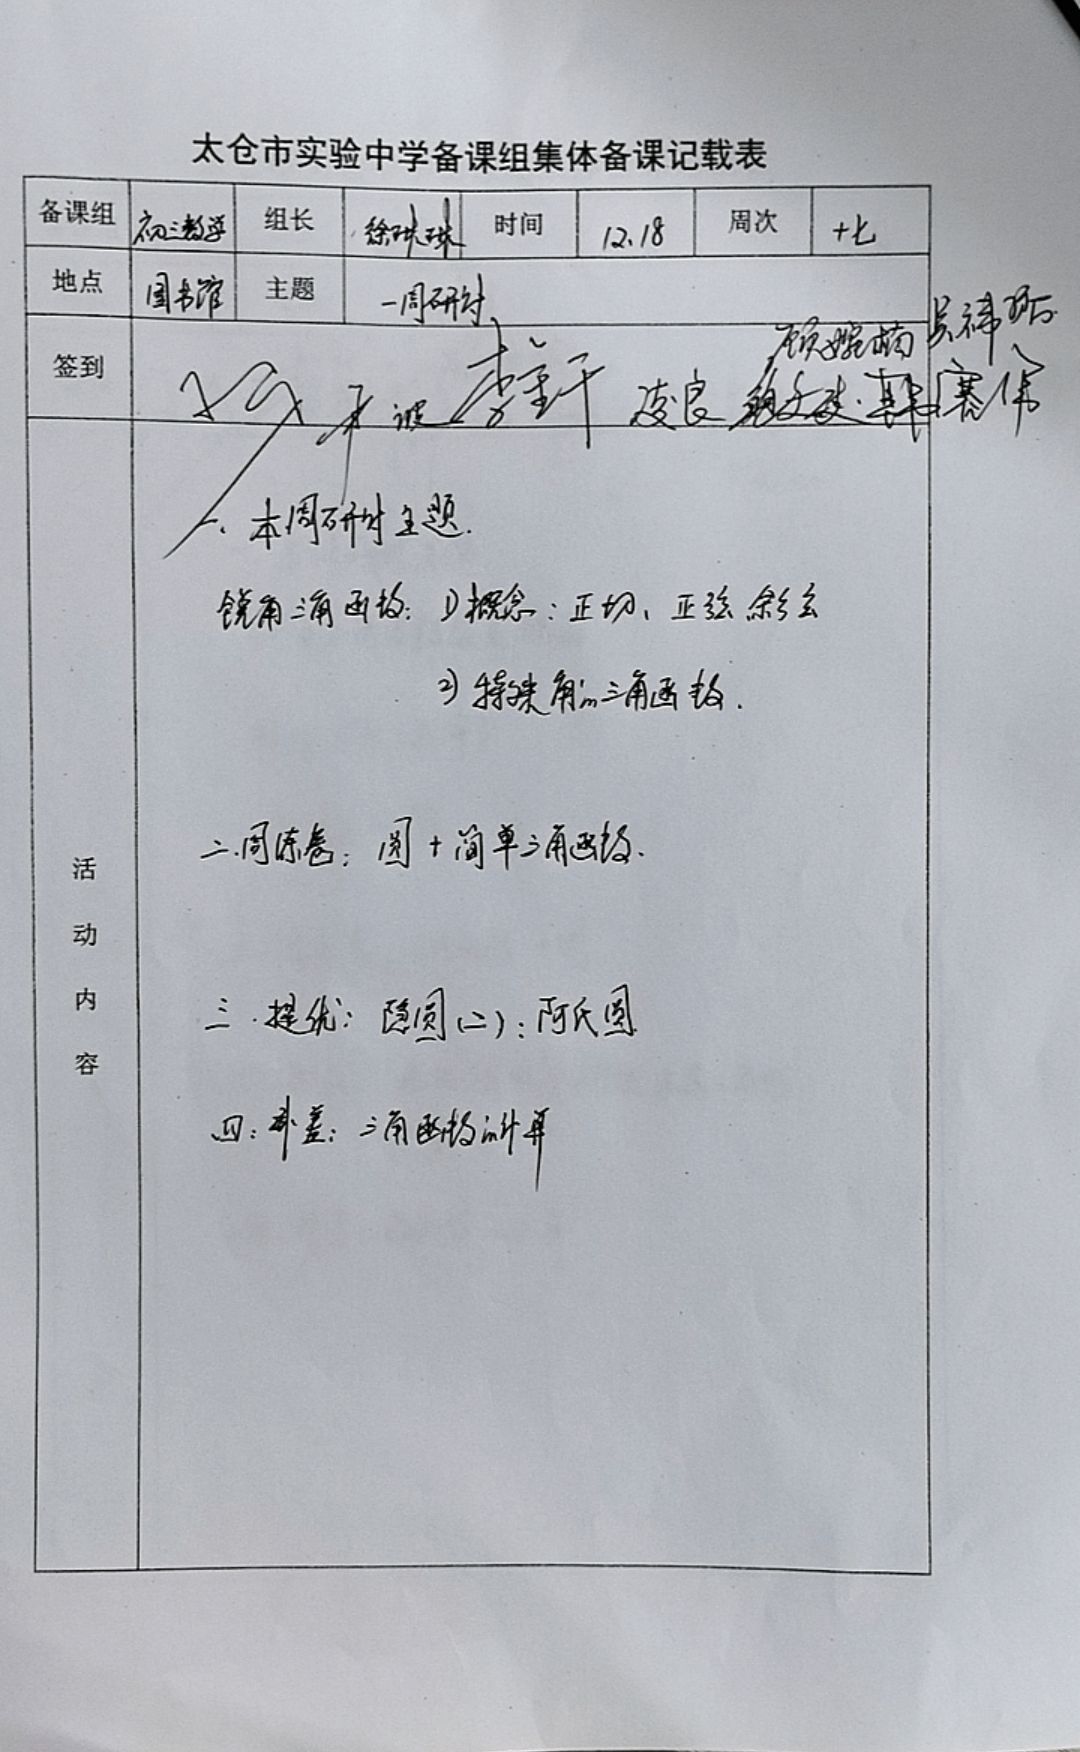 太仓市实验中学备课组集体备课记载表
备课组 初三数学 组长 徐琳琳 时间 12.18 周次 十七
地点 图书馆 主题 一周研讨
签到 凌良
一、本周研讨主题.
锐角三角函数: 1)概念:正切、正弦 余弦
2) 特殊角的三角函数.
二.周练卷: 圆+简单三角函数.
三.提优: 隐圆(二):阿氏圆
四:补差: 三角函数的计算
活动内容